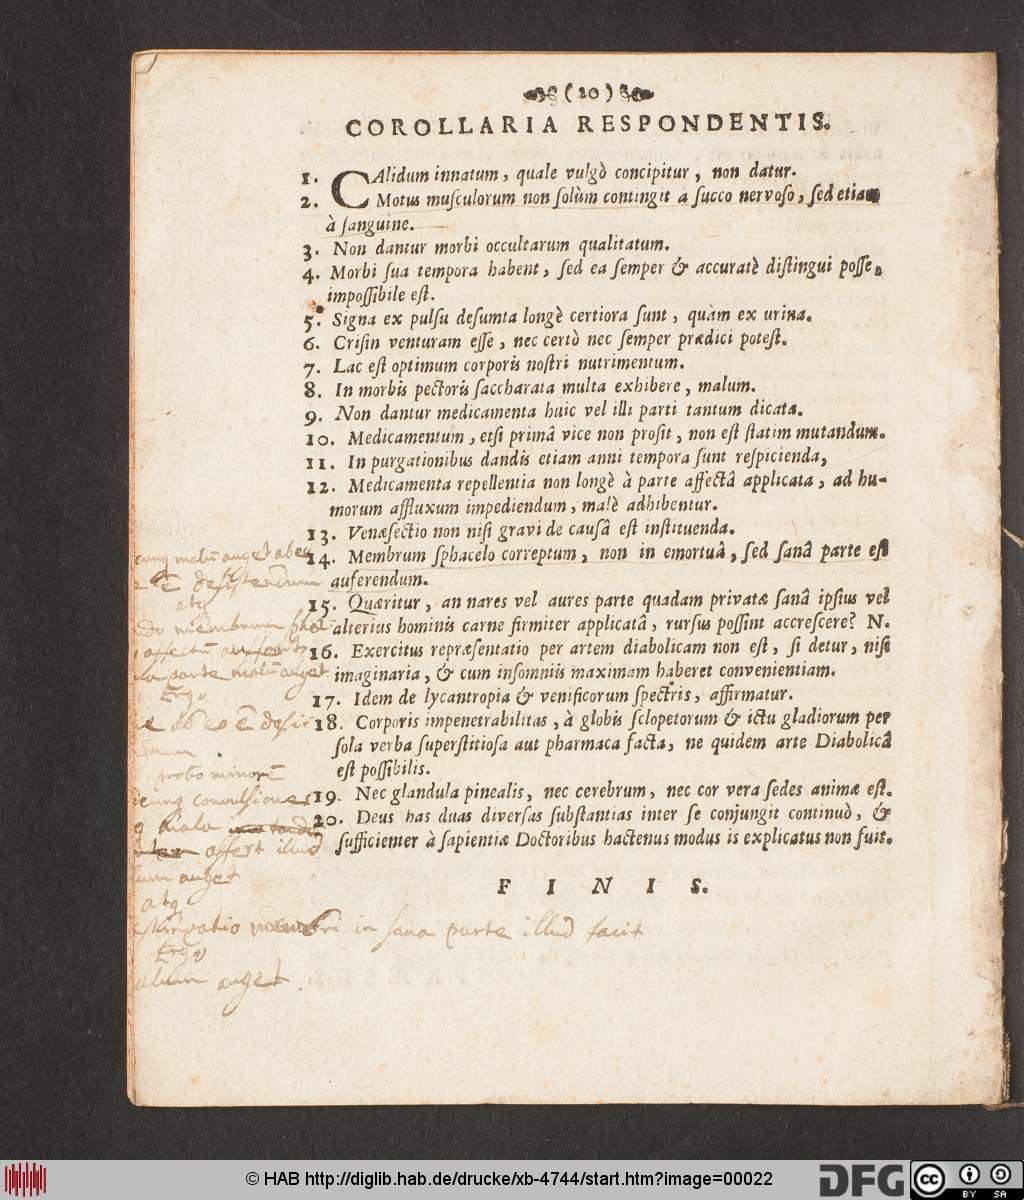 (20)
COROLLARIA RESPONDENTIS.
1. CAlidum innatum, quale vulgò concipitur, non datur.
2. Motus musculorum non solùm contingit à succo nervoso, sed etiam
à sanguine.
3. Non dantur morbi occultarum qualitatum.
4. Morbi sua tempora habent, sed ea semper & accuratè distingui posse,
impossibile est.
5. Signa ex pulsu desumta longè certiora sunt, quàm ex urina.
6. Crisin venturam esse, nec certò nec semper prædici potest.
7. Lac est optimum corporis nostri nutrimentum.
8. In morbis pectoris saccharata multa exhibere, malum.
9. Non dantur medicamenta huic vel illi parti tantum dicata.
10. Medicamentum, etsi primâ vice non prosit, non est statim mutandum.
11. In purgationibus dandis etiam anni tempora sunt respicienda,
12. Medicamenta repellentia non longè à parte affectâ applicata, ad hu-
morum affluxum impediendum, malè adhibentur.
13. Venæsectio non nisi gravi de causâ est instituenda.
14. Membrum sphacelo correptum, non in emortuâ, sed sanâ parte est
auferendum.
15. Quæritur, an nares vel aures parte quadam privatæ sanâ ipsius vel
alterius hominis carne firmiter applicatâ, rursus possint accrescere? N.
16. Exercitus repræsentatio per artem diabolicam non est, si detur, nisi
imaginaria, & cum insomniis maximam haberet convenientiam.
17. Idem de lycantropia & venificorum spectris, affirmatur.
18. Corporis impenetrabilitas, à globis sclopetorum & ictu gladiorum per
sola verba superstitiosa aut pharmaca facta, ne quidem arte Diabolicâ
est possibilis.
19. Nec glandula pinealis, nec cerebrum, nec cor vera sedes animæ est.
20. Deus has duas diversas substantias inter se conjungit continuò, &
sufficienter à sapientiæ Doctoribus hactenus modus is explicatus non fuit.
FINIS.
malũ auget ab eo
atq
membrum
parte malũ auget
Ergo
probo minorẽ
convulsiones
affert illud
auget
atq
membri in sana parte illud facit
Ergo
auget.
© HAB http://diglib.hab.de/drucke/xb-4744/start.htm?image=00022
DFG
cc
BY SA